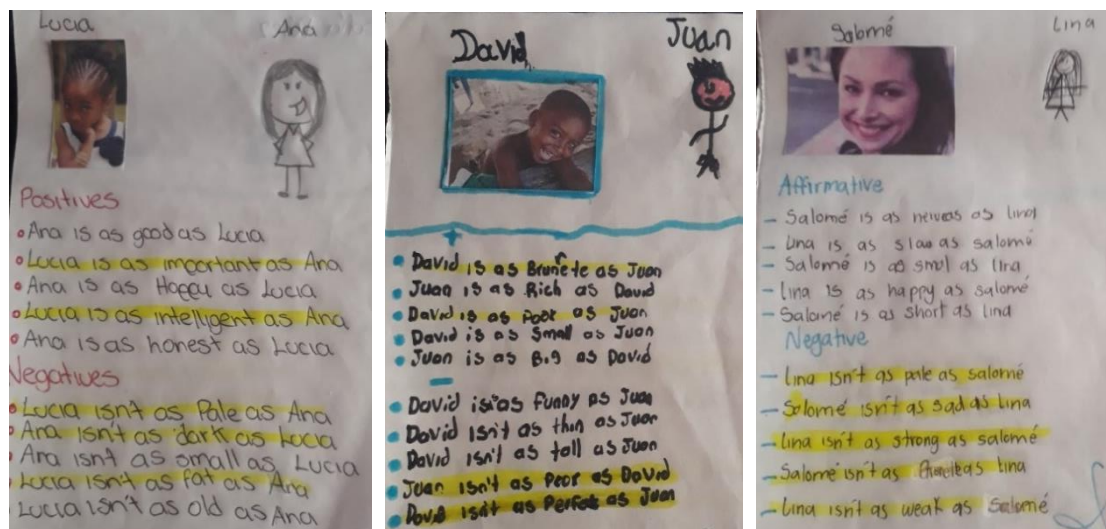 Lucia
Ana
Positives
Ana is as good as Lucia
Lucia is as important as Ana
Ana is as Happy as Lucia
Lucia is as intelligent as Ana
Ana is as honest as Lucia
Negatives
Lucia isn't as Pale as Ana
Ana isn't as dark as Lucia
Ana isn't as small as Lucia
Lucia isn't as fat as Ana
Lucia isn't as old as Ana
David
Juan
+
David is as Brunete as Juan
Juan is as Rich as David
David is as Poor as Juan
David is as Small as Juan
Juan is as Big as David
-
David is as Funny as Juan
David isn't as thin as Juan
David isn't as tall as Juan
Juan isn't as Peor as David
David isn't as Perfet as Juan
Salomé
Lina
Affirmative
- Salomé is as as Lina
- Lina is as slow as salomé
- Salomé is as smol as lina
- Lina is as happy as salomé
- Salomé is as short as lina
Negative
- Lina isn't as pale as salomé
- Salomé isn't as sad as lina
- Lina isn't as strong as salomé
- Salomé isn't as as lina
- Lina isn't as weak as Salomé